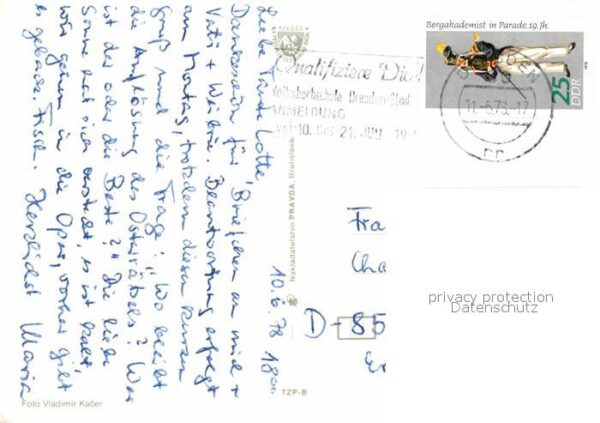 Liebe Tante Lotte,
Dankeschön für Briefchen an mich +
Vati + Weitere. Beantwortung erfolgt
am Montag, trotzdem diesen kurzen
Gruß und die Frage: „Wo bleibt
die Auflösung des Osterrätsels? Wer
ist der oder die Beste?" Die liebe
Sonne hat sich versteckt, es ist kalt,
wir gehen in die Oper, vorher gibt
es geback. Fisch. Herzlichst Maria
10.6.78 18⁰⁰
Foto Vladimír Kačer
TZP-B
Nakladatelstvo PRAVDA, Bratislava
Qualifiziere Dich!
Volkshochschule Dresden-Stadt
ANMELDUNG
vom 10. BIS 21. JULI 19
DRESDEN
11.-6.78.-17
rr
Bergakademist in Parade 19. Jh.
25
DDR
Fra
Cha
D-85
privacy protection
Datenschutz